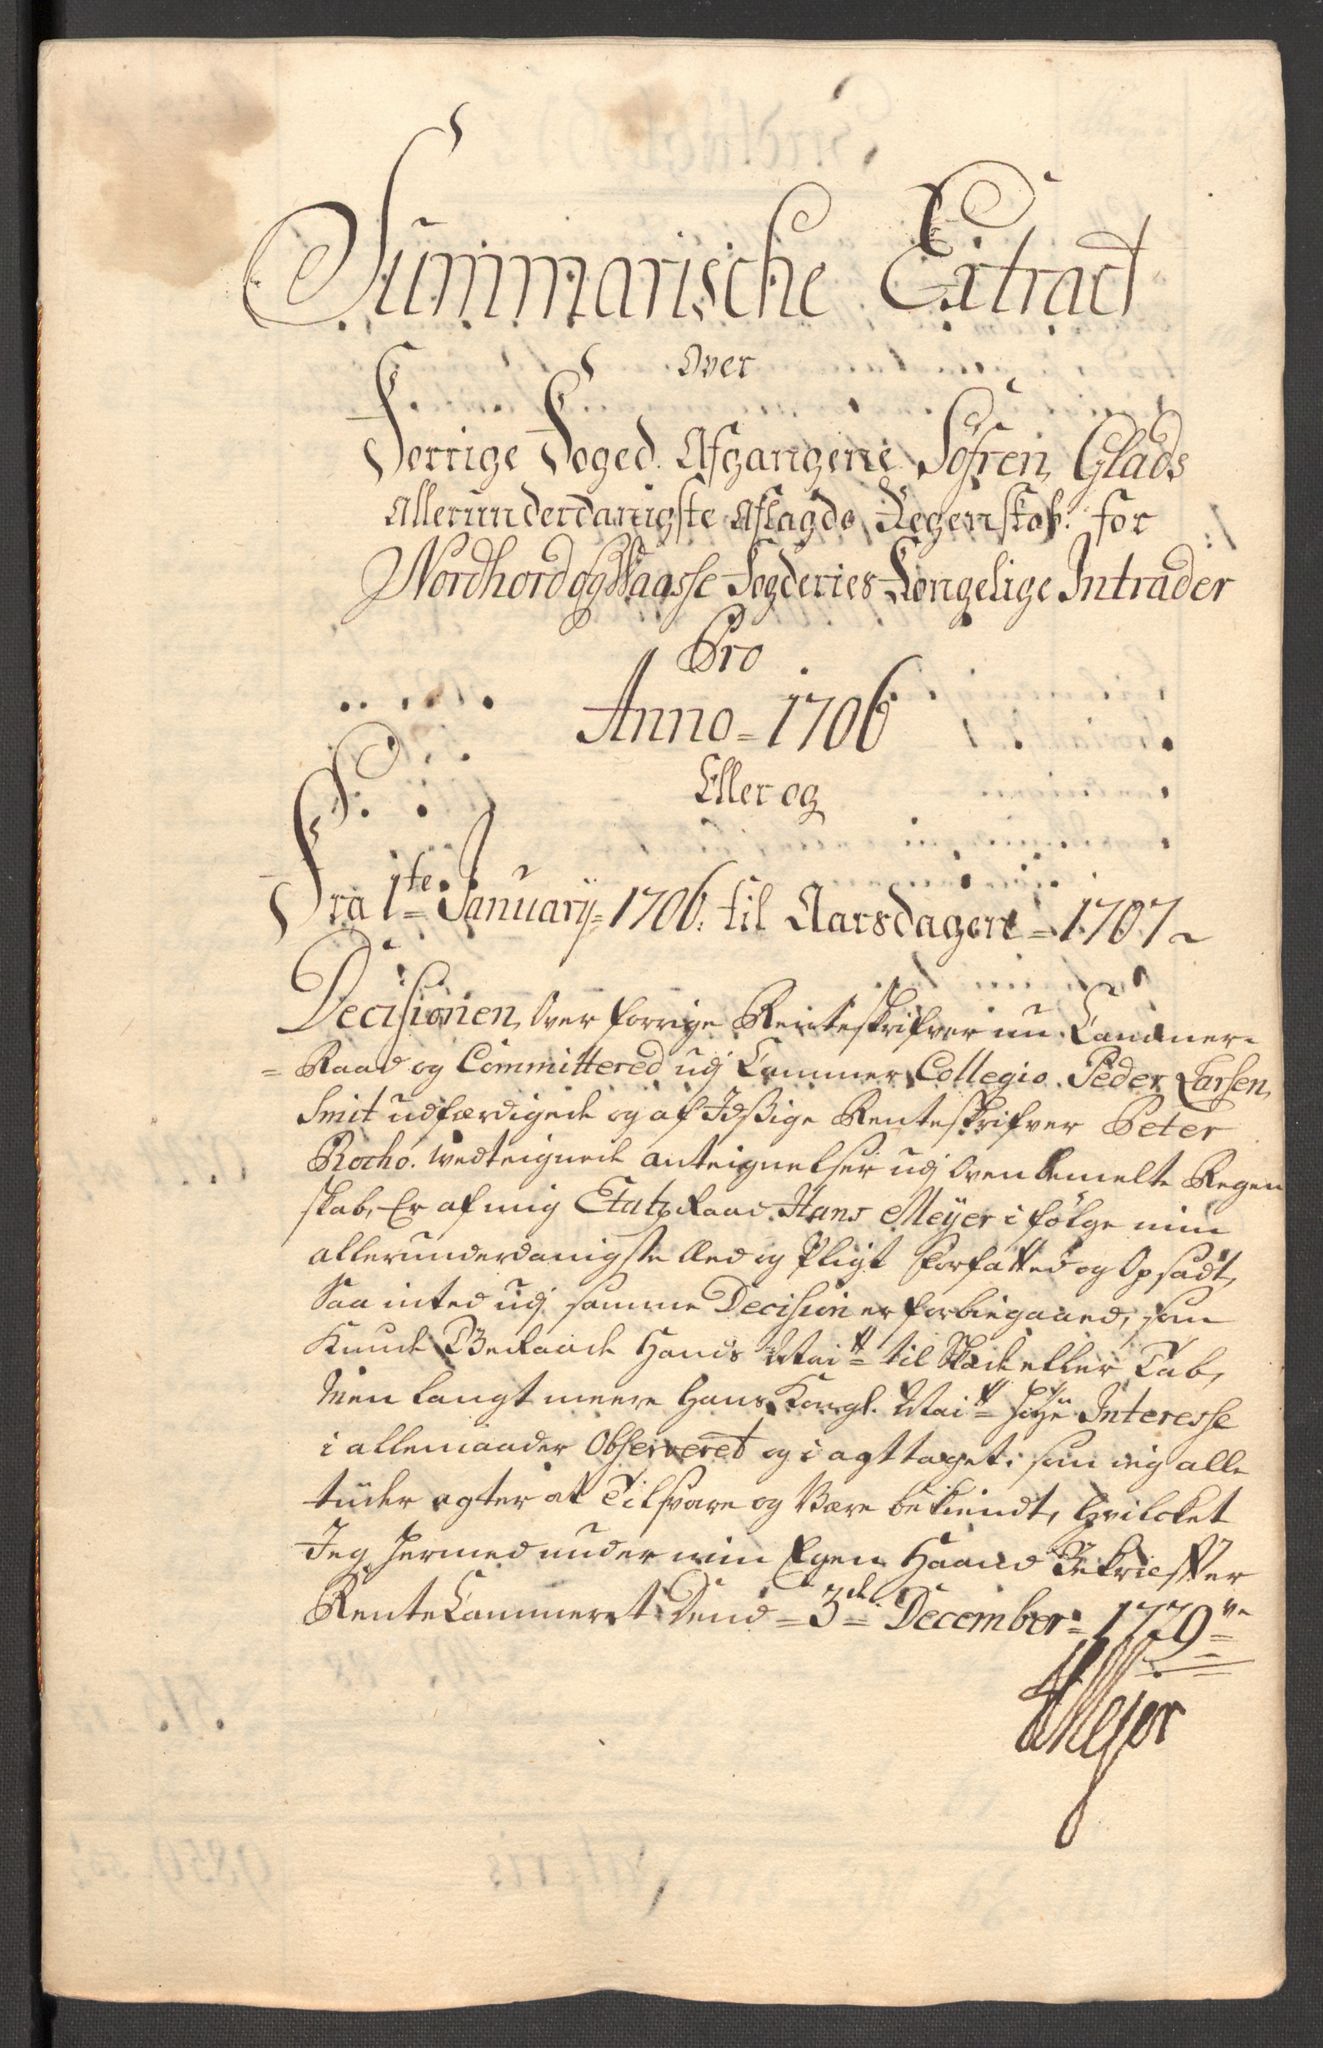 Summarische Extract
Over
Forrige Foged Afgangene Søfren Glads
Allerunderdanigste Aflagde Regenskab for
Nordhord og Waasse Fogderies Kongelige Intrader
Pro
Anno = 1706
Eller og
Fra 1te January = 1706. til Aarsdagen = 1707
Decisionen, Over forrige Renteskrifver nu Cammer-
= Raad og Committered udj Cammer Collegio Peder Larsen
Smit udfærdigede og af Idtzige Renteskrifver Peter
Rocho. wedteignede anteignelser udj Ovenbemelte Regen
skab, Er af mig Etatz Raad Hans Meÿer i følge min
allerunderdanigste Æed og Pligt forfatted og Opsadt,
Saa inted udj samme Decision er forbiegaaed, som
Kunde Geraade Hands Maitt til Skade eller Tab,
Men langt meere hans Kongl. Maitt høÿe Interesse
i alle maader Observeret og i agttaget; som ieg alle
tiider agter at Tilsvare og Være bekiendt, hvilcket
Jeg hermed under min Egen Haand Bekrieffter
Rente Cammeret Dend = 3de December = 1720
HMejer